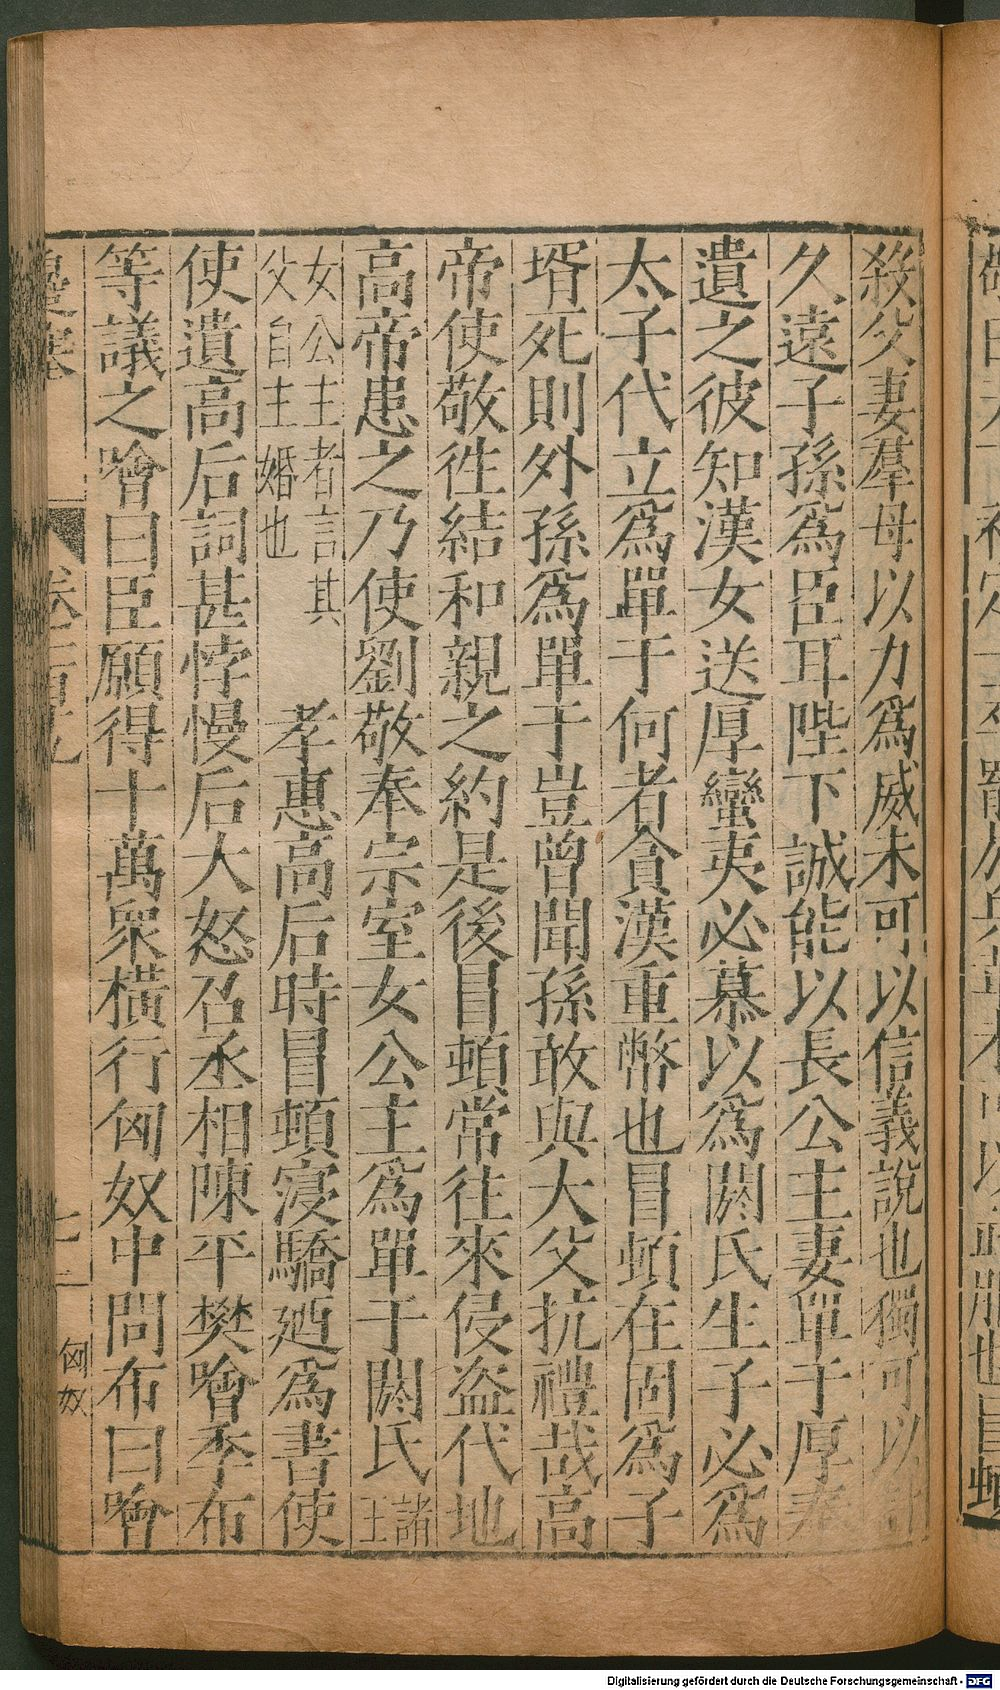 殺父妻羣母以力爲威未可以信義說也獨可以計
久遠子孫爲臣耳陛下誠能以長公主妻單于厚奉
遺之彼知漢女送厚蠻夷必慕以爲閼氏生子必爲
太子代立爲單于何者貪漢重幣也冒頓在固爲子
壻死則外孫爲單于豈曾聞孫敢與大父抗禮哉高
帝使敬徃結和親之約是後冒頓常往來侵盜代地
高帝患之乃使劉敬奉宗室女公主爲單于閼氏諸王
女公主者言其父自主婚也 孝惠高后時冒頓寖驕廼爲書使
使遺高后詞甚悖慢后大怒召丞相陳平樊噲季布
等議之噲曰臣願得十萬衆橫行匈奴中問布曰噲
邊塞 卷二百九 七 匈奴
Digitalisierung gefördert durch die Deutsche Forschungsgemeinschaft - DFG